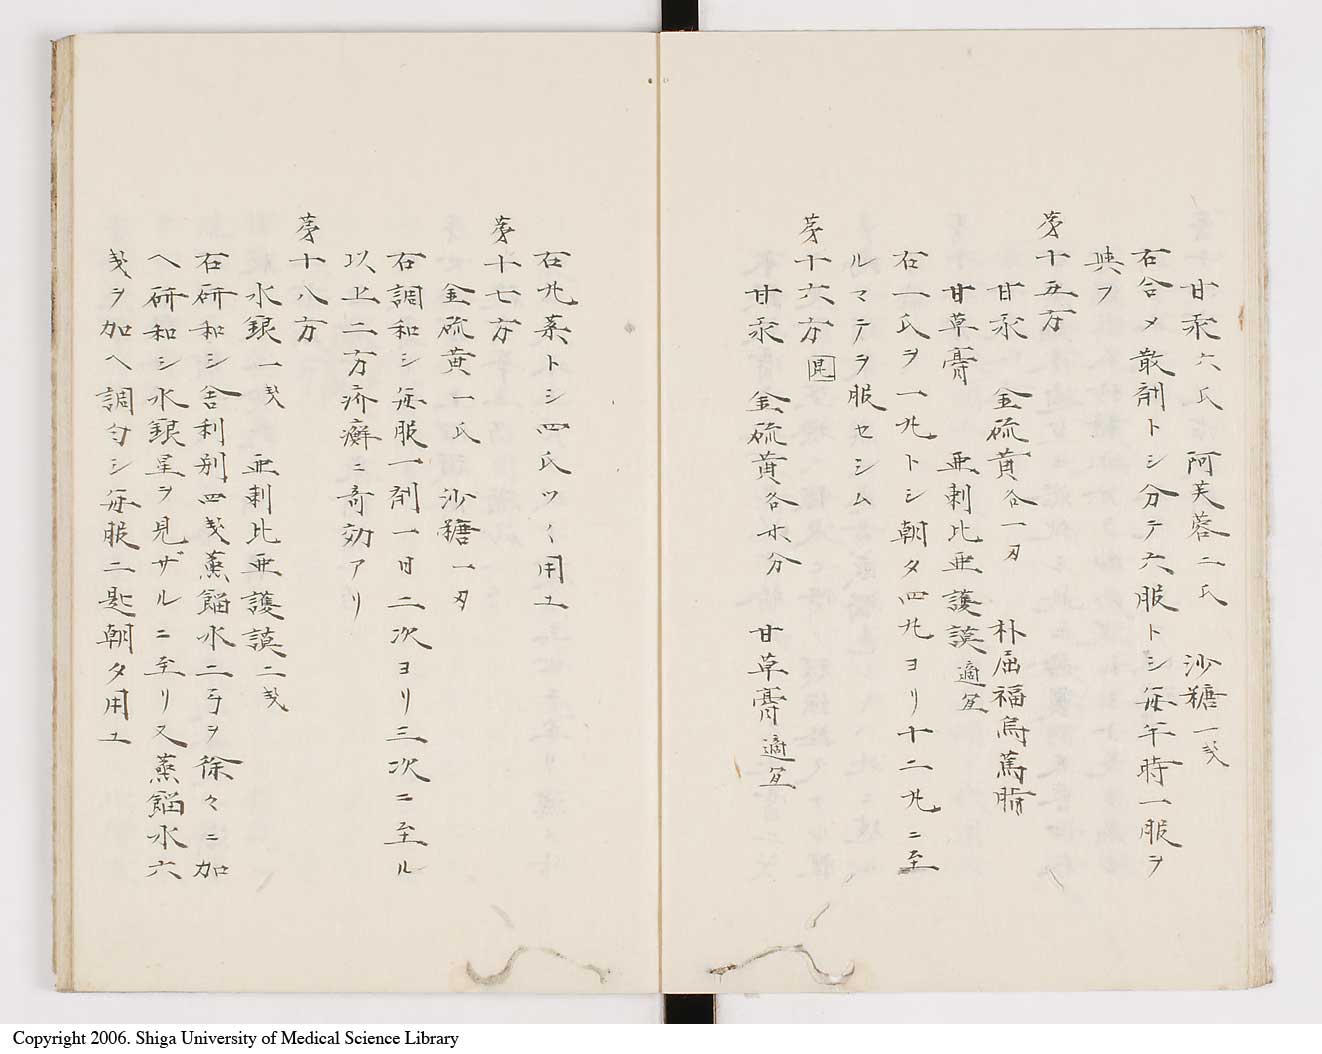 甘汞六氏　阿芙蓉二氏　沙糖一戔
右合メ散剤トシ分テ六服トシ毎午時一服ヲ
與フ
第十五方
甘汞　金硫黄各一刃　朴屈福烏篤脂
甘草膏　亜剌比亜護謨適宜
右一氏ヲ一丸トシ朝夕四丸ヨリ十二丸ニ至
ルマテヲ服セシム
第十六方
甘汞　金硫黄各等分　甘草膏適宜
右丸薬トシ四氏ツヽ用ユ
第十七方
金硫黄一氏　沙糖一刃
右調和シ毎服一剤一日二次ヨリ三次ニ至ル
以上二方疥癬ニ奇効アリ
第十八方
水銀一戔　亜剌比亜護謨二戔
右研和シ舎利別四戔蒸餾水二弓ヲ徐々ニ加
ヘ研和シ水銀星ヲ見ザルニ至リ又蒸餾水六
戔ヲ加ヘ調匀シ毎服二匙朝夕用ユ
Copyright 2006. Shiga University of Medical Science Library